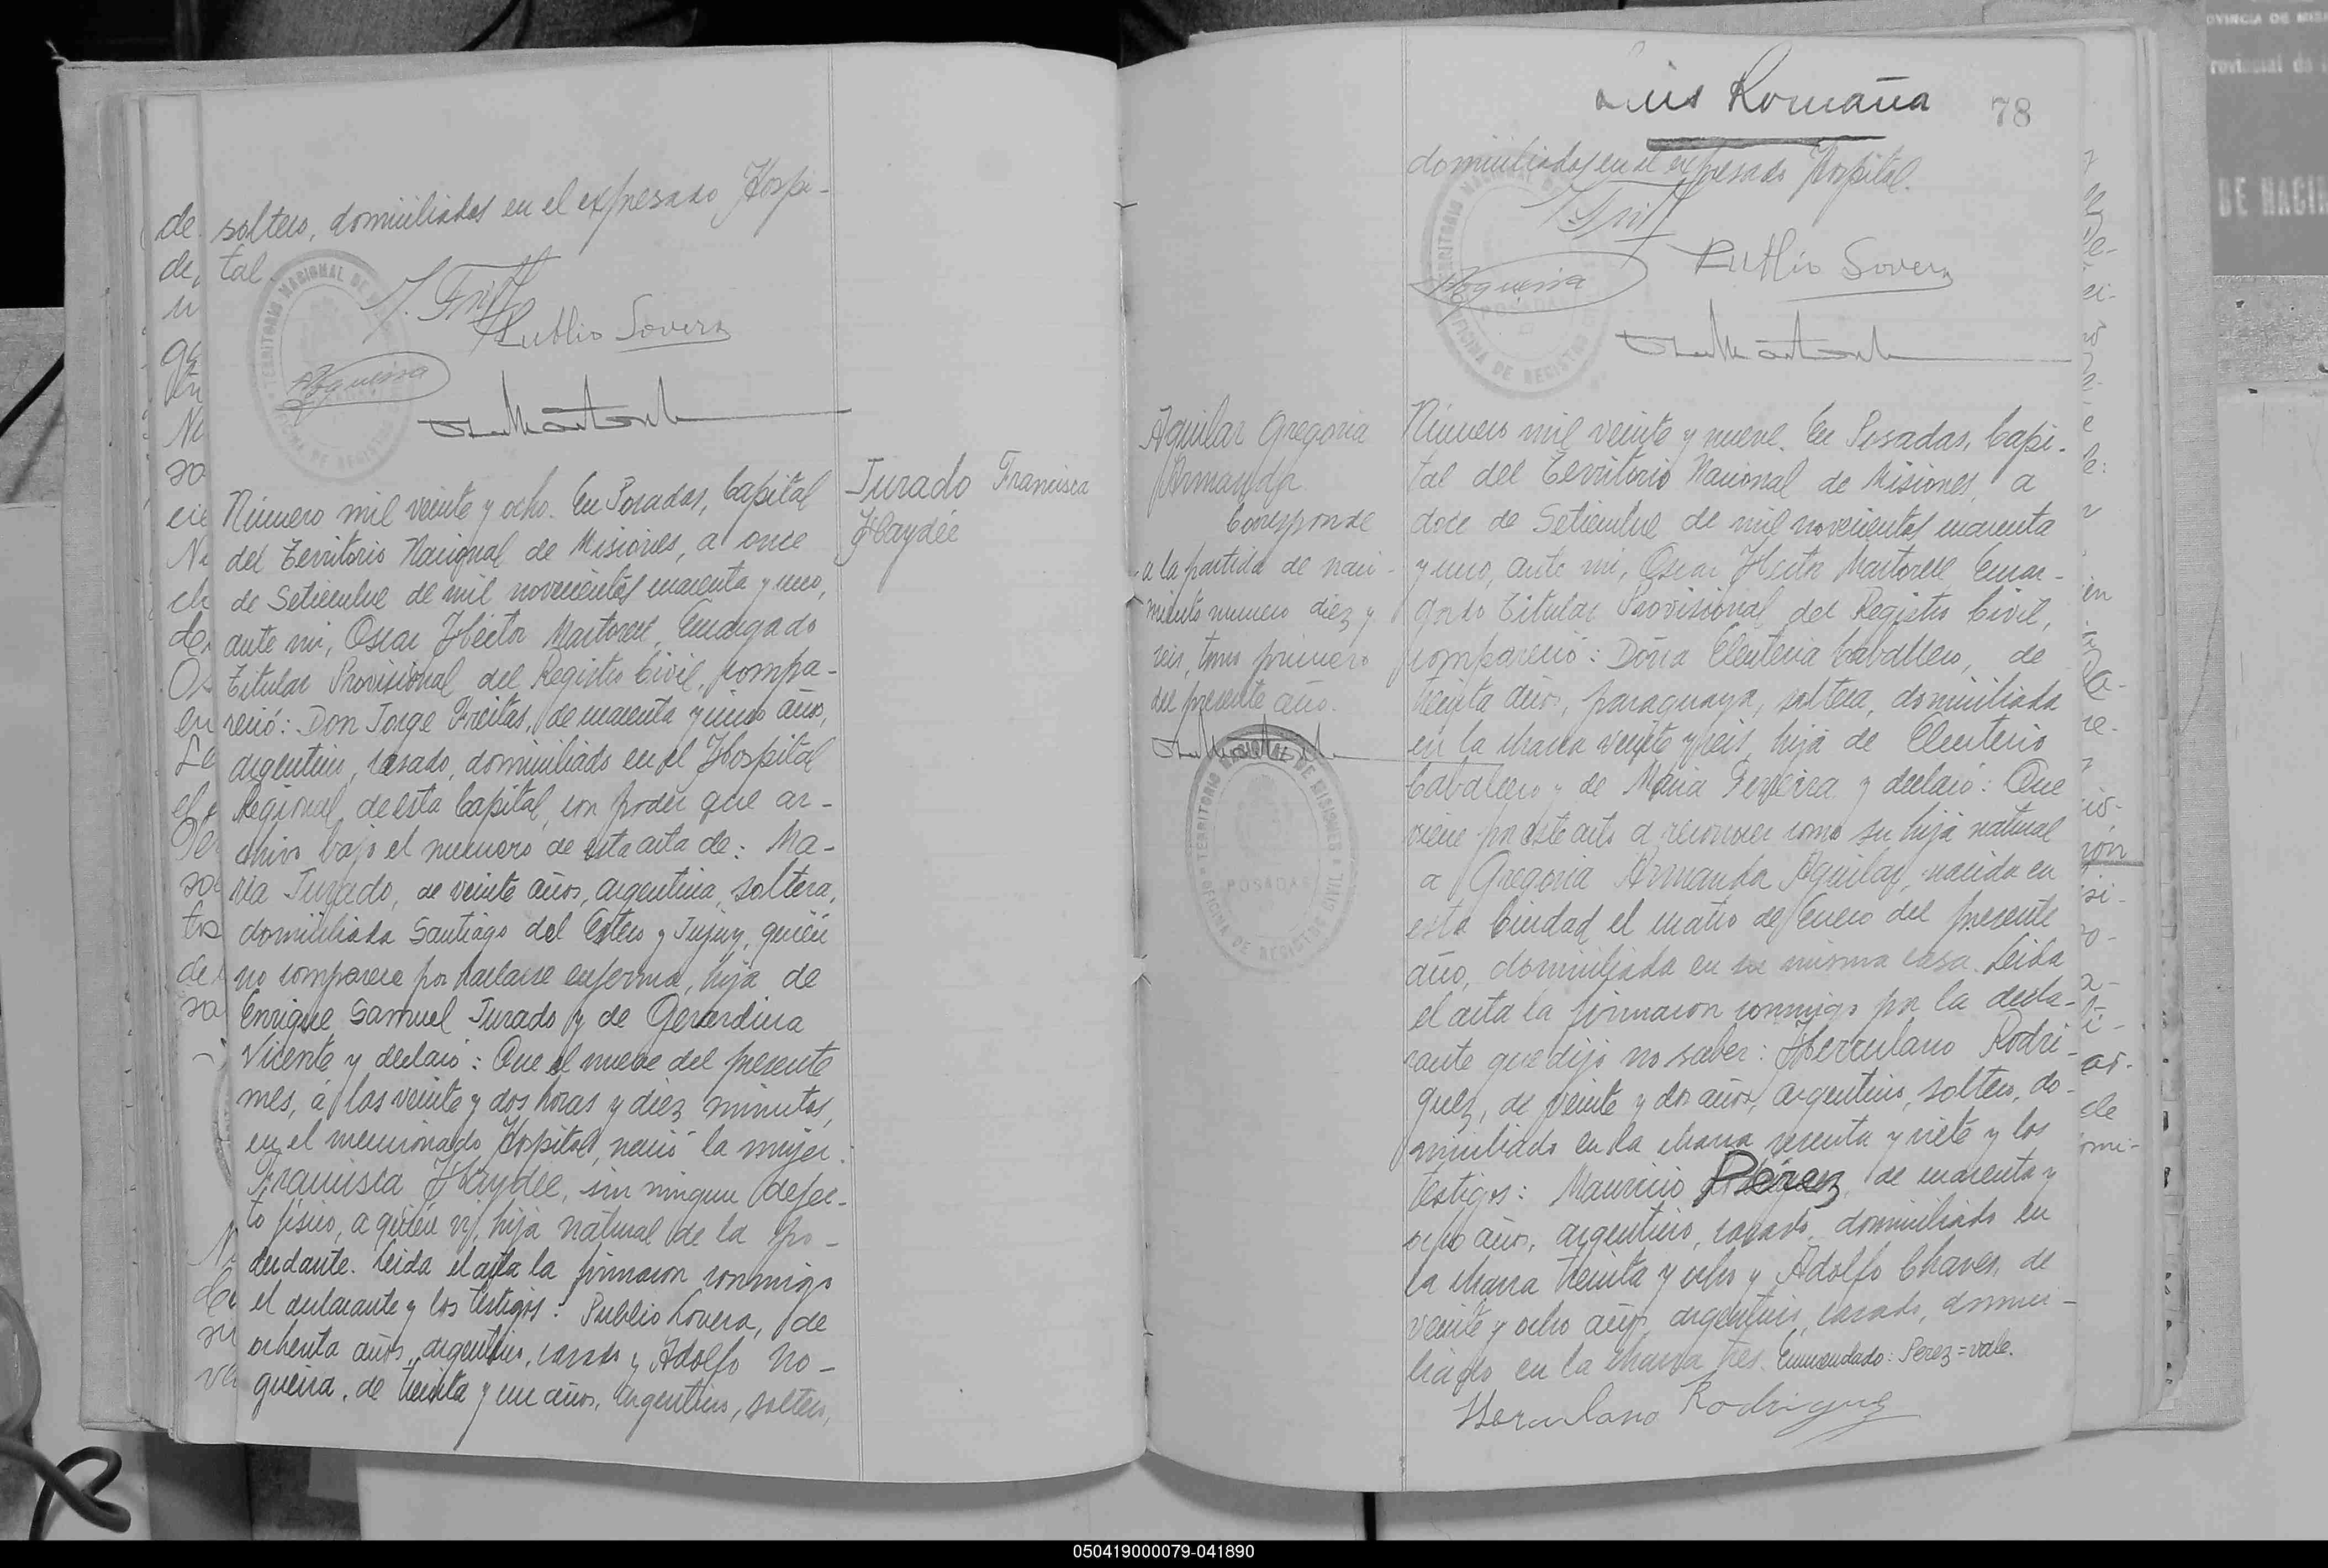 soltero, domiciliados en el expresado Hospi-
tal.
J. Freitas
Publio Lovera
Nogueira
Jurado Francisca
Haydée
Número mil veinte y ocho. En Posadas, Capital
del Territorio Nacional de Misiones, a once
de Setiembre de mil novecientos cuarenta y uno,
ante mi, Oscar Héctor Martorell, Encargado
Titular Provisional del Registro Civil, compa-
reció: Don Jorge Freitas, de cuarenta y cinco años,
argentino, casado, domiciliado en el Hospital
Regional de esta Capital, con poder que ar-
chivo bajo el numero de esta acta de: Ma-
ria Jurado, de veinte años, argentina, soltera,
domiciliada Santiago del Estero y Jujuy, quién
no comparece por hallarse enferma, hija de
Enrique Samuel Jurado y de Gerardina
Vicente y declaró: Que el nueve del presente
mes, á las veinte y dos horas y diez minutos,
en el mencionado Hospital, nació la mujer
Francisca Haydée, sin ningun defec-
to físico, a quién vi, hija natural de la po-
derdante. Leida el acta la firmaron conmigo
el declarante y los testigos: Publio Lovera, de
ochenta años, argentino, casado y Adolfo No-
gueira, de treinta y un años, argentino, soltero,
Luis Romaña
78
domiciliados en el expresado Hospital.
Publio Lovera
Nogueira
TERRITORIO NACIONAL DE MISIONES
POSADAS
OFICINA DE REGISTRO CIVIL
Aguilar Gregoria
Armanda
Corresponde
a la partida de naci-
miento numero diez y
seis, tomo primero
del presente año.
Número mil veinte y nueve. En Posadas, Capi-
tal del Territorio Nacional de Misiones, a
doce de Setiembre de mil novecientos cuarenta
y uno, ante mi, Oscar Héctor Martorell, Encar-
gado Titular Provisional del Registro Civil,
compareció: Doña Eleuteria Caballero, de
treinta años, paraguaya, soltera, domiciliada
en la chacra veinte y seis, hija de Eleuterio
Caballero y de Maria Ferreira y declaró: Que
viene por este acto a reconocer como su hija natural
a Gregoria Armanda Aguilar, nacida en
esta Ciudad el cuatro de Enero del presente
año, domiciliada en su misma casa. Leida
el acta la firmaron conmigo por la decla-
rante que dijo no saber: Herculano Rodri-
guez, de veinte y dos años, argentino, soltero, do-
miciliado en la chacra sesenta y siete y los
testigos: Mauricio Pérez, de cuarenta y
ocho años, argentino, casado, domiciliado en
la chacra treinta y ocho y Adolfo Chaves, de
veinte y ocho años, argentino, casado, domici-
liado en la chacra tres. Enmendado: Perez=vale.
Herculano Rodriguez
050419000079-041890